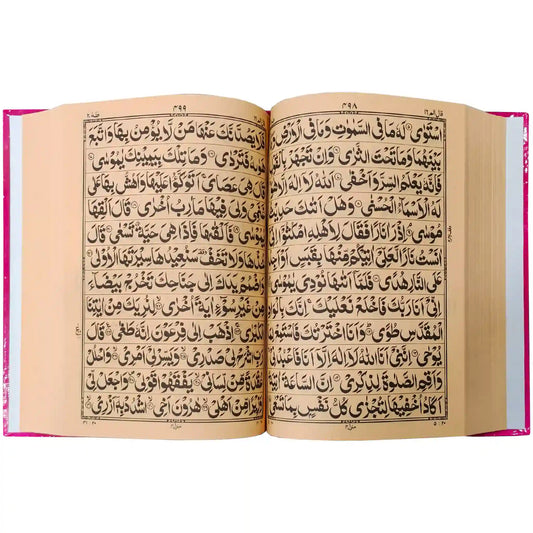 ٤٩٨
اسْتَوٰى ۝ لَهٗ مَا فِى السَّمٰوٰتِ وَمَا فِى الْاَرْضِ
بَيْنَهُمَا وَمَا تَحْتَ الثَّرٰى ۝ وَاِنْ تَجْهَرْ
فَاِنَّهٗ يَعْلَمُ السِّرَّ وَاَخْفٰى ۝ اَللّٰهُ لَاۤ اِلٰهَ اِلَّا
لَهُ الْاَسْمَآءُ الْحُسْنٰى ۝ وَهَلْ اَتٰىكَ حَدِيْثُ
مُوْسٰى ۝ اِذْ رَاٰ نَارًا فَقَالَ لِاَهْلِهِ امْكُثُوْۤا
اٰنَسْتُ نَارًا لَّعَلِّيْۤ اٰتِيْكُمْ مِّنْهَا بِقَبَسٍ اَوْ
عَلَى النَّارِ هُدًى ۝ فَلَمَّاۤ اَتٰىهَا نُوْدِيَ يٰمُوْسٰى
اِنِّيْۤ اَنَا رَبُّكَ فَاخْلَعْ نَعْلَيْكَ اِنَّكَ
الْمُقَدَّسِ طُوًى ۝ وَاَنَا اخْتَرْتُكَ فَاسْتَمِعْ
يُوْحٰى ۝ اِنَّنِيْۤ اَنَا اللّٰهُ لَاۤ اِلٰهَ اِلَّاۤ اَنَا فَاعْبُدْنِيْ
وَاَقِمِ الصَّلٰوةَ لِذِكْرِيْ ۝ اِنَّ السَّاعَةَ اٰتِيَةٌ
اَكَادُ اُخْفِيْهَا لِتُجْزٰى كُلُّ نَفْسٍۭ بِمَا تَسْعٰى
٤٩٩
فَلَا يَصُدَّنَّكَ عَنْهَا مَنْ لَّا يُؤْمِنُ بِهَا وَاتَّبَعَ
فَتَرْدٰى ۝ وَمَا تِلْكَ بِيَمِيْنِكَ يٰمُوْسٰى
هِيَ عَصَايَ اَتَوَكَّؤُا عَلَيْهَا وَاَهُشُّ بِهَا عَلٰى
وَلِيَ فِيْهَا مَاٰرِبُ اُخْرٰى ۝ قَالَ اَلْقِهَا
فَاَلْقٰىهَا فَاِذَا هِيَ حَيَّةٌ تَسْعٰى ۝ قَالَ
وَلَا تَخَفْ سَنُعِيْدُهَا سِيْرَتَهَا الْاُوْلٰى
وَاضْمُمْ يَدَكَ اِلٰى جَنَاحِكَ تَخْرُجْ بَيْضَآءَ
مِنْ غَيْرِ سُوْٓءٍ اٰيَةً اُخْرٰى ۝ لِنُرِيَكَ مِنْ اٰيٰتِنَا
الْكُبْرٰى ۝ اِذْهَبْ اِلٰى فِرْعَوْنَ اِنَّهٗ طَغٰى ۝ قَالَ
اشْرَحْ لِيْ صَدْرِيْ ۝ وَيَسِّرْ لِيْۤ اَمْرِيْ ۝ وَاحْلُلْ
مِّنْ لِّسَانِيْ ۝ يَفْقَهُوْا قَوْلِيْ ۝ وَاجْعَلْ لِّيْ
وَزِيْرًا مِّنْ اَهْلِيْ ۝ هٰرُوْنَ اَخِيْ ۝ اشْدُدْ بِهٖۤ اَزْرِيْ